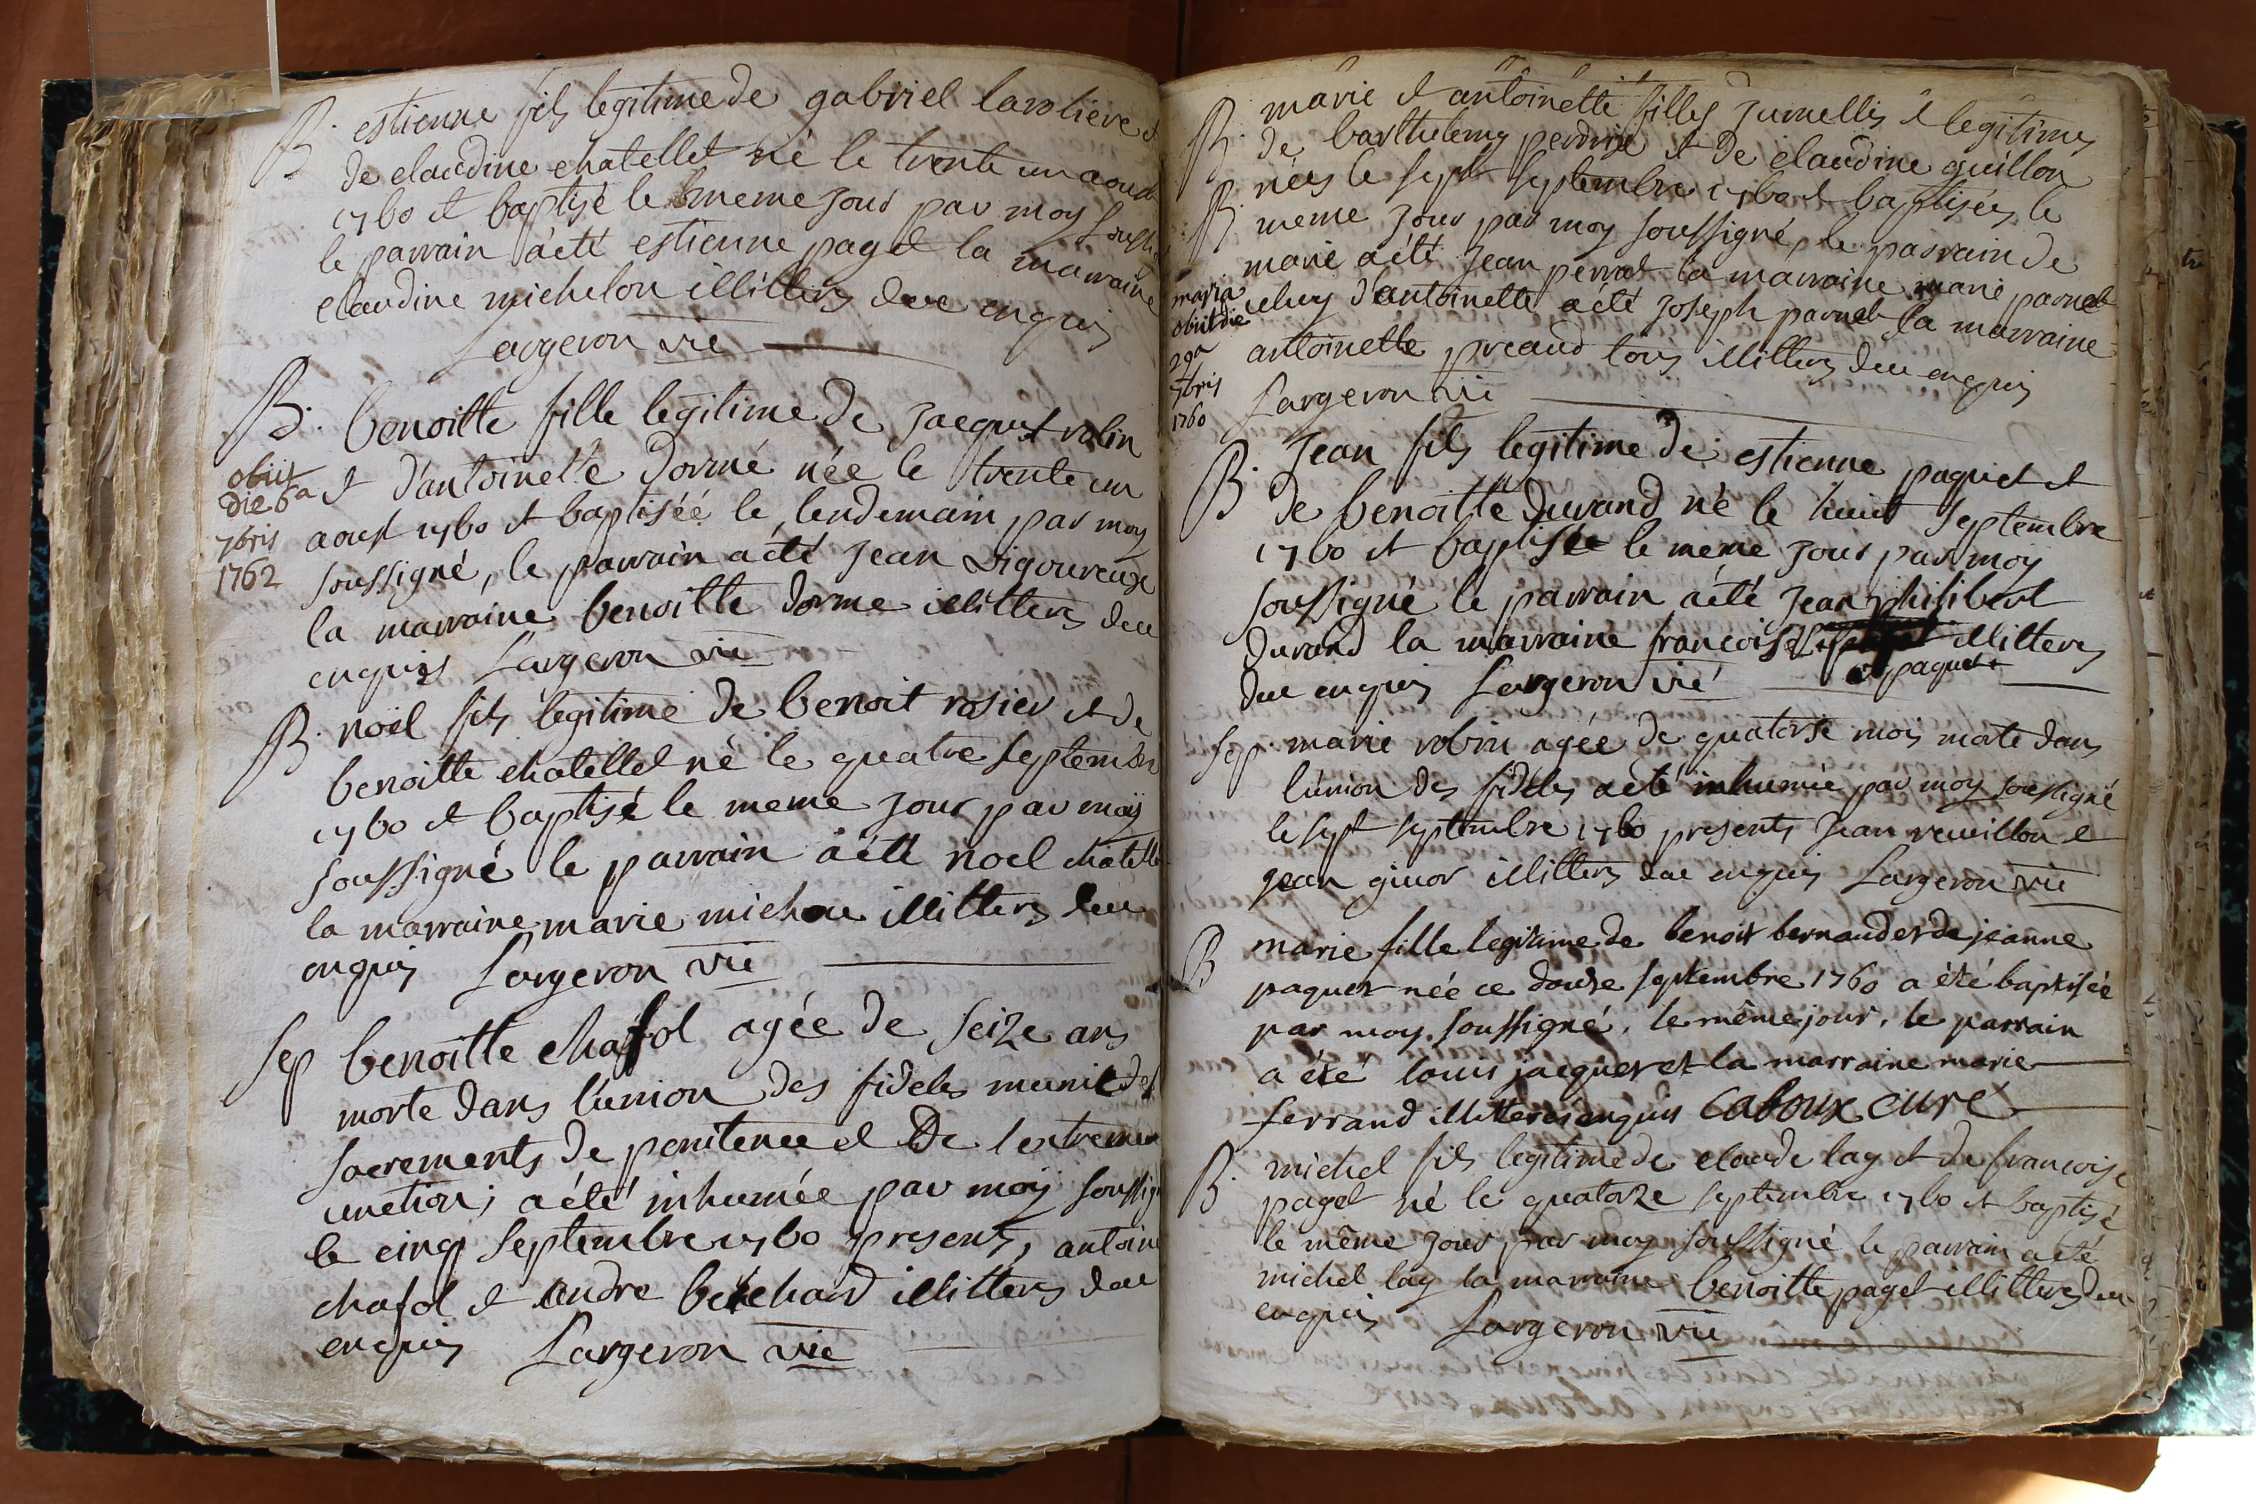 B. estienne fils legitime de gabriel laroliere et
de claudine chatellet né le trente un aoust
1760 et baptisé le meme jour par moy soussi
le parrain a été estienne paget la marraine
claudine michelon illitteres due enquis
Largeron vic
B. benoitte fille legitime de jacques robin
et d'antoinette dormé née le trente un
aoust 1760 et baptiséé le lendemain par moy
soussigné, le parrain a été jean vigoureux
la marraine benoitte dorme illitteres due
enquis Largeron vic
obiit
die 6a
7bris
1762
B. noël fils legitime de benoit rosier et de
benoitte chatellet né le quatre septembre
1760 et baptisé le meme jour par moy
soussigné le parrain a été noel chatelle
la marraine marie michou illitteres due
enquis Largeron vic
Sep benoitte chafol agée de seize ans
morte dans l'union des fideles munie des
sacrements de penitence et De l'extreme
unction, a été inhumée par moy soussig
le cinq septembre 1760 presents, antoine
chafol et andre berchard illitteres due
enquis Largeron vic
B. marie et antoinette filles jumelles et legitimes
de barthelemy perdrix et de claudine guillon
B. nées le sept septembre 1760 et baptisées le
meme jour par moy soussigné, le parrain de
marie a été jean perrat la marraine marie parnet
celuy d'antoinette a été joseph parnet la marraine
antoinette preaud tous illitteres due enquis
Largeron vic
maria
obiit die
29a
7bris
1760
B. jean fils legitime de estienne paquet et
de benoitte durand né le huit septembre
1760 et baptisée le meme jour par moy
soussigné le parrain a été jean philibert
durand la marraine françoise illitteres
paquet
due enquis Largeron vic
Sep. marie robin agée de quatorse mois morte dans
l'union des fideles a été inhumée par moy soussigné
le sept septembre 1760 presents jean revillon et
jean guior illitteres due enquis Largeron vic
B marie fille legitime de benoit bernaud et de jeanne
paquet née ce douse septembre 1760 a été baptisée
par moy soussigné, le même jour, le parrain
a été louis jacquet et la marraine marie
ferrand illitteres enquis Caboux curé
B. michel fils legitime de claude lay et de françoise
paget né le quatorze septembre 1760 et baptisé
le même jour par moy soussigné le parrain a été
michel lay la marraine benoitte paget illitteres due
enquis Largeron vic